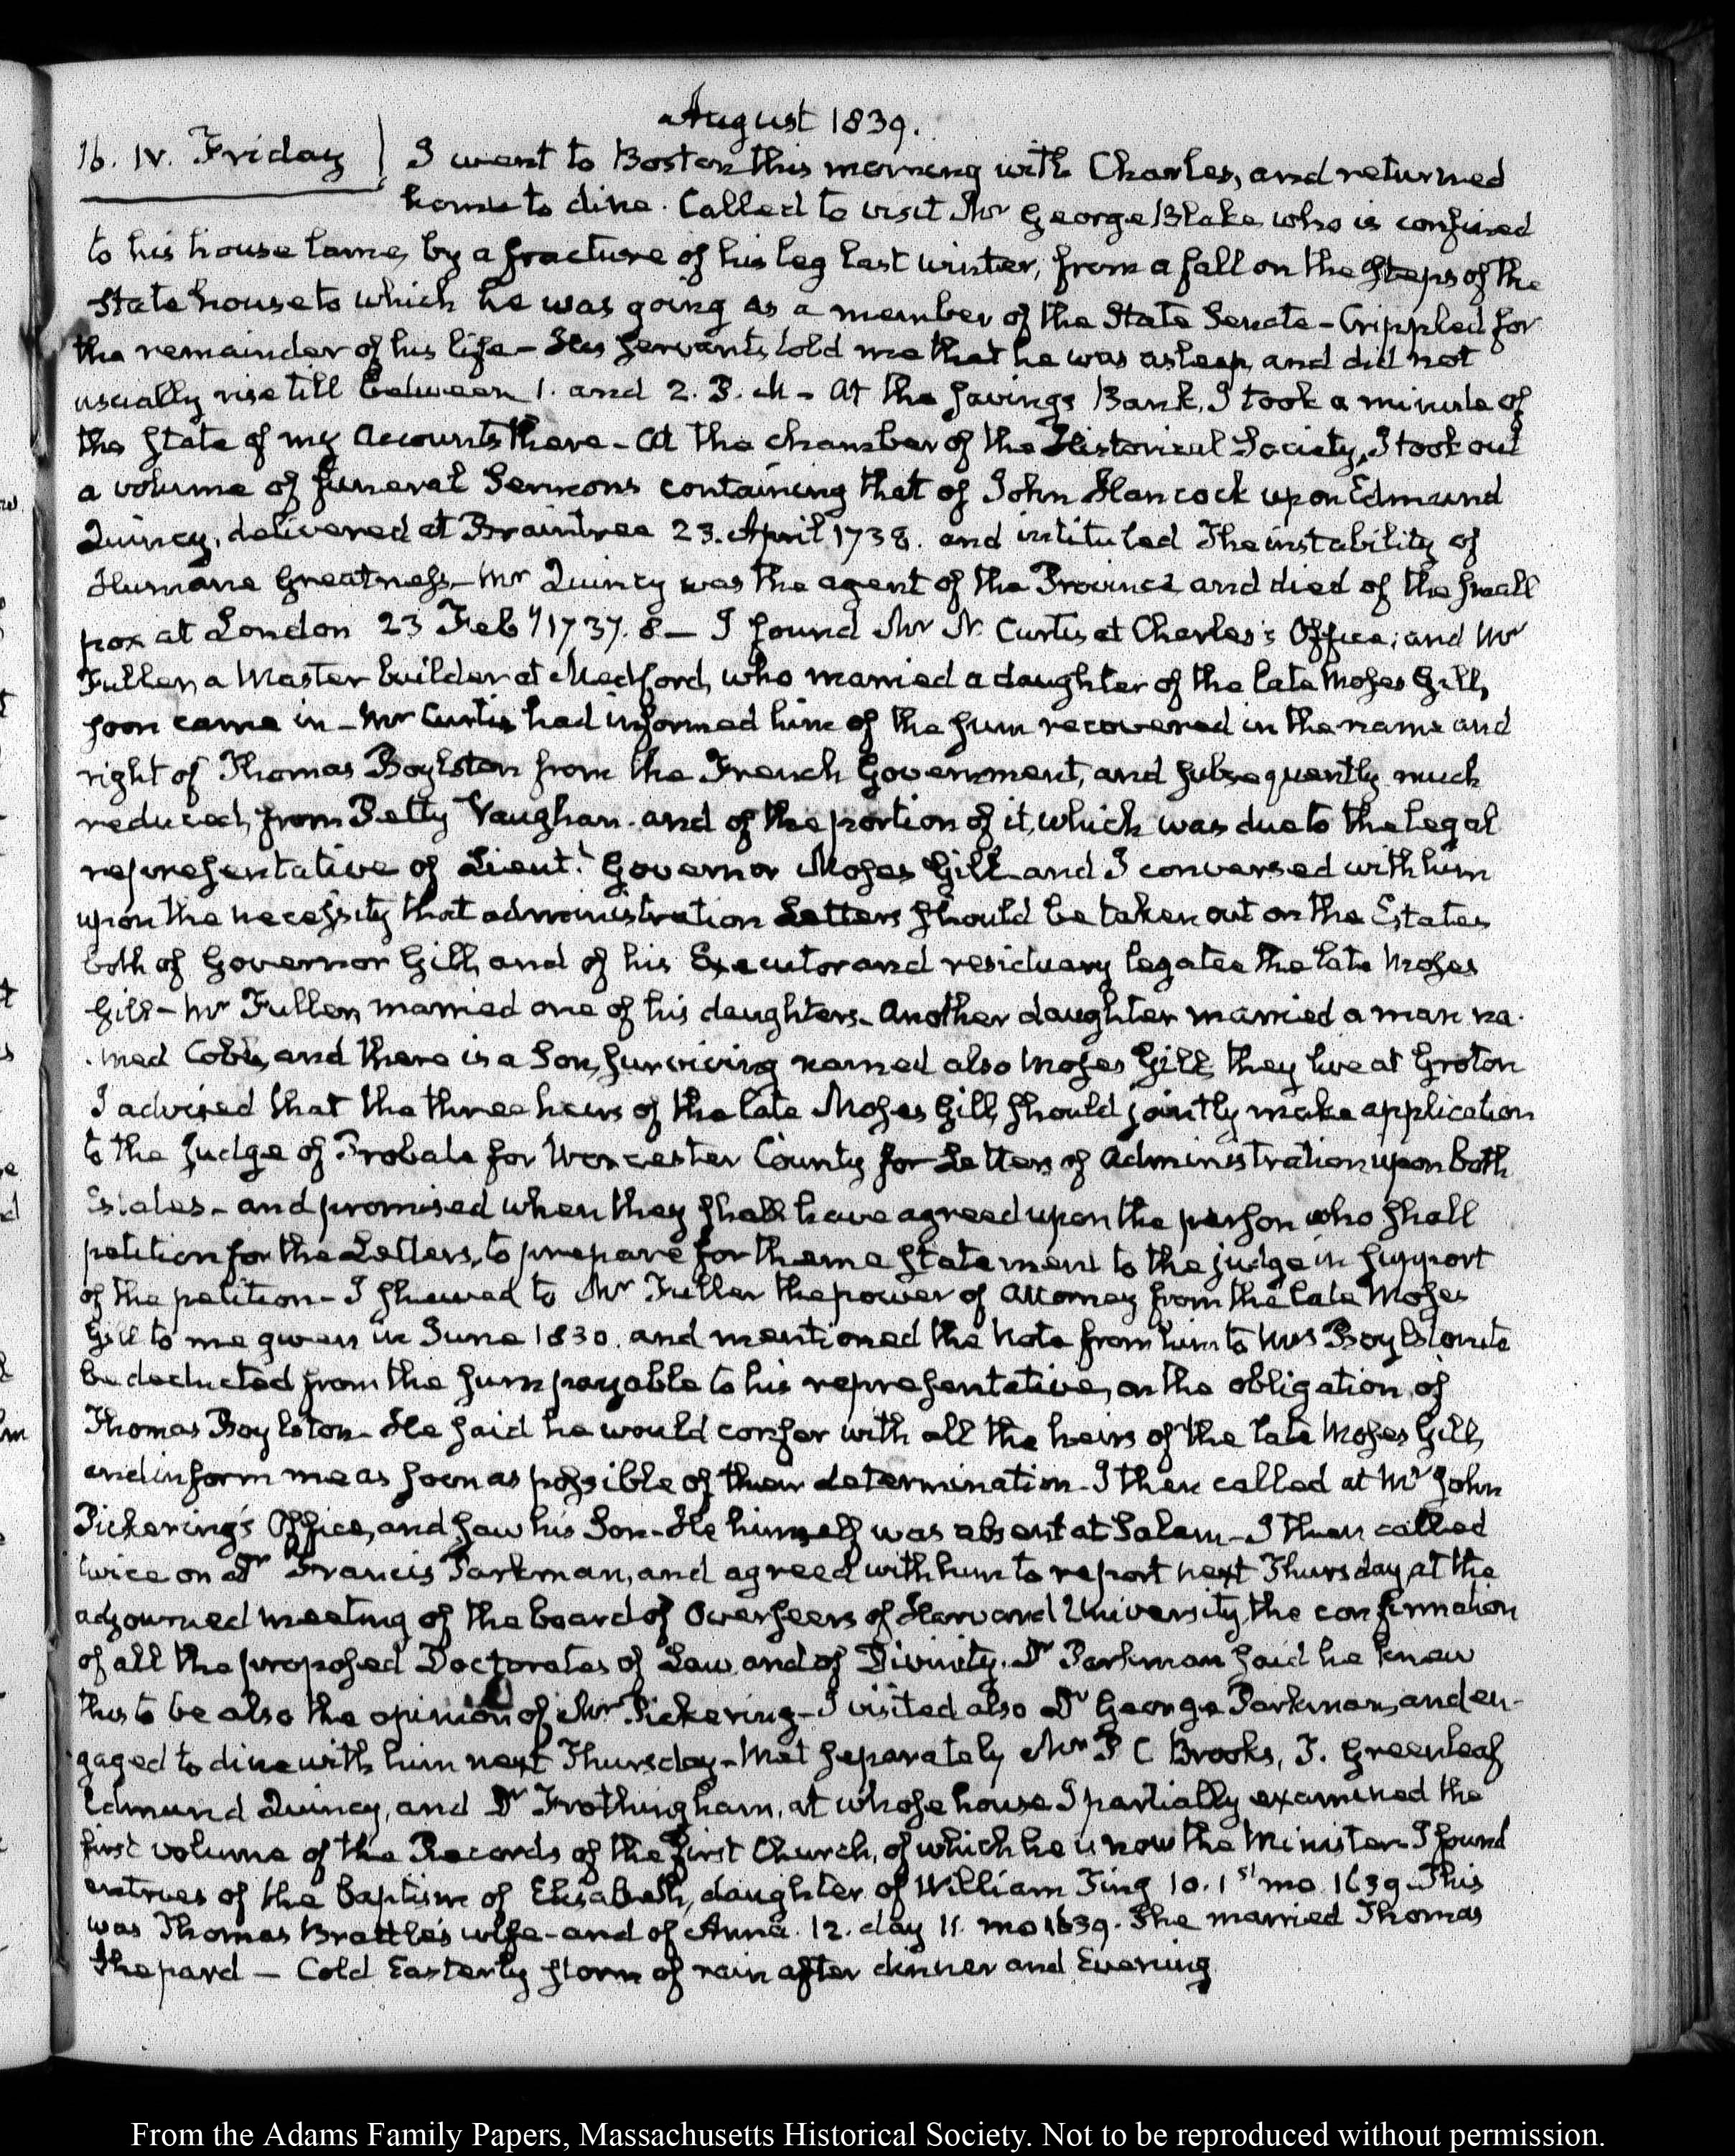 August 1839.
16. IV. Friday I went to Boston this morning with Charles, and returned
home to dine. Called to visit Mr George Blake who is confined
to his house lame, by a fracture of his leg last winter, from a fall on the steps of the
State house to which he was going as a member of the State Senate - Crippled for
the remainder of his life - His servants told me that he was asleep, and did not
usually rise till between 1. and 2. P. M - At the Savings Bank, I took a minute of
the state of my Accounts there - At the chamber of the Historical Society, I took out
a volume of funeral Sermons containing that of John Hancock upon Edmund
Quincy, delivered at Braintree 23. April 1738. and intituled The instability of
Humane Greatness - Mr Quincy was the agent of the Province and died of the small
pox at London 23 Feby 1737. 8 - I found Mr N. Curtis at Charles's Office; and Mr
Fuller, a Master builder at Medford, who married a daughter of the late Moses Gill,
soon came in - Mr Curtis had informed him of the sum recovered in the name and
right of Thomas Boylston from the French Government, and subsequently much
reduced, from Petty Vaughan. and of the portion of it, which was due to the legal
representative of Lieut.t Governor Moses Gill and I conversed with him
upon the necessity that administration Letters should be taken out on the Estates
both of Governor Gill, and of his Executor and residuary legatee the late Moses
Gill - Mr Fuller, married one of his daughters - Another daughter married a man na-
-med Cobb, and there is a Son, surviving named also Moses Gill, they live at Groton
I advised that the three heirs of the late Moses Gill, should jointly make application
to the Judge of Probate for Worcester County for Letters of Administration upon both
Estates - and promised when they shall have agreed upon the person who shall
petition for the Letters, to prepare for them a statement to the judge in support
of the petition - I shewed to Mr Fuller the power of Attorney from the late Moses
Gill to me given in June 1830. and mentioned the Note from him to Mrs Boylston to
be deducted from the sum payable to his representative, on the obligation of
Thomas Boylston - He said he would confer with all the heirs of the late Moses Gill,
and inform me as soon as possible of their determination - I then called at Mr John
Pickering's Office, and saw his Son - He himself was absent at Salem - I then called
twice on Dr Francis Parkman, and agreed with him to report next Thursday, at the
adjourned meeting of the board of Overseers of Harvard University, the confirmation
of all the proposed Doctorates of Law, and of Divinity. Dr Parkman said he knew
this to be also the opinion of Mr Pickering - I visited also Dr George Parkman, and en-
gaged to dine with him next Thursday - Met separately Mr P C Brooks, T. Greenleaf
Edmund Quincy, and Dr Frothingham, at whose house I partially examined the
first volume of the Records of the first Church, of which he is now the Minister I found
entries of the baptism of Elisabeth, daughter of William Ting 10. 1st mo 1639. This
was Thomas Brattle's wife - and of Anna. 12. day 11. mo 1639. She married Thomas
Shepard - Cold Easterly storm of rain after dinner and Evening
From the Adams Family Papers, Massachusetts Historical Society. Not to be reproduced without permission.